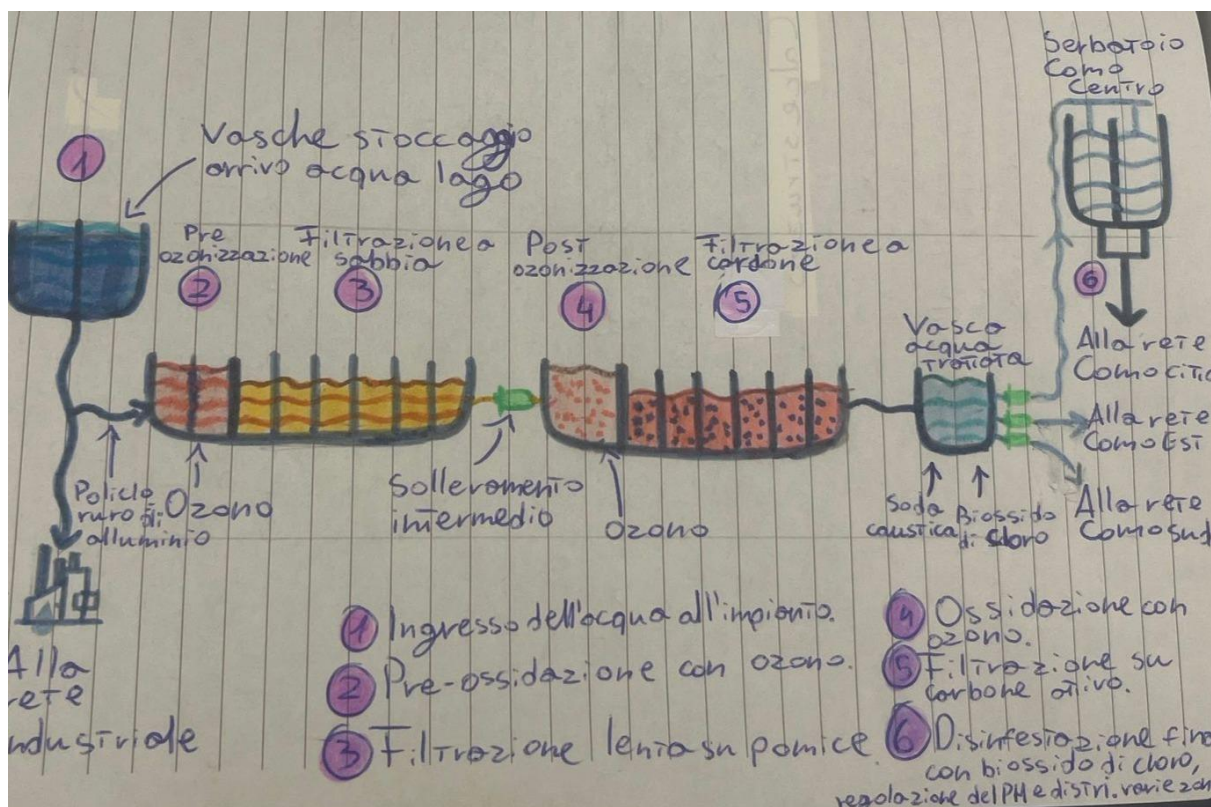 1
Vasche stoccaggio
arrivo acqua lago
Pre
ozonizzazione
2
Filtrazione a
sabbia
3
Post
ozonizzazione
4
Filtrazione a
cardone
5
Vasca
acqua
trattata
Serbatoio
Como
Centro
6
Alla rete
Como citt
Alla rete
Como Est
Alla rete
Como sud
Policlo
ruro di
alluminio
Ozono
Solleramento
intermedio
Ozono
Soda
caustica
Biossido
di cloro
Alla
rete
ndustriale
1 Ingresso dell'acqua all'impianto.
2 Pre-ossidazione con ozono.
3 Filtrazione lenta su pomice.
4 Ossidazione con
ozono.
5 Filtrazione su
carbone attivo.
6 Disinfestazione fina
con biossido di cloro,
regolazione del PH e distri. varie zon